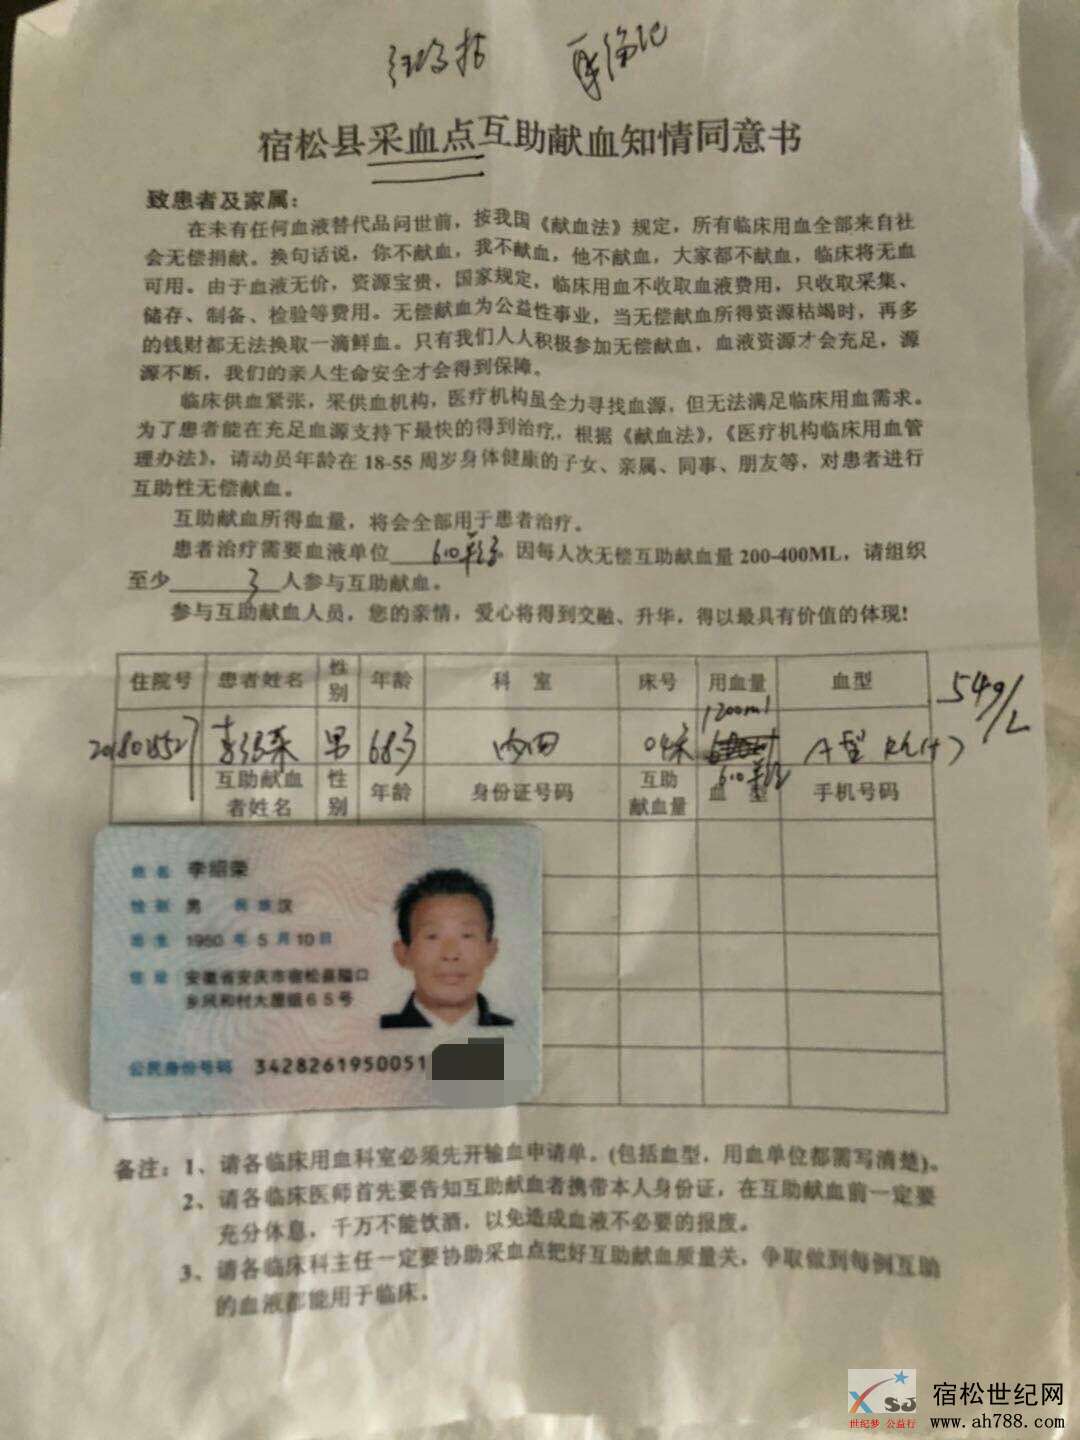 宿松县采血点互助献血知情同意书
致患者及家属:
在未有任何血液替代品问世前，按我国《献血法》规定，所有临床用血全部来自社
会无偿捐献。换句话说，你不献血，我不献血，他不献血，大家都不献血，临床将无血
可用。由于血液无价，资源宝贵，国家规定，临床用血不收取血液费用，只收取采集、
储存、制备、检验等费用。无偿献血为公益性事业，当无偿献血所得资源枯竭时，再多
的钱财都无法换取一滴鲜血。只有我们人人积极参加无偿献血，血液资源才会充足，源
源不断，我们的亲人生命安全才会得到保障。
临床供血紧张，采供血机构，医疗机构虽全力寻找血源，但无法满足临床用血需求。
为了患者能在充足血源支持下最快的得到治疗，根据《献血法》，《医疗机构临床用血管
理办法》，请动员年龄在 18-55 周岁身体健康的子女、亲属、同事、朋友等，对患者进行
互助性无偿献血。
互助献血所得血量，将会全部用于患者治疗。
患者治疗需要血液单位 6.0单位 因每人次无偿互助献血量 200-400ML，请组织
至少 3 人参与互助献血。
参与互助献血人员，您的亲情，爱心将得到交融、升华，得以最具有价值的体现!
住院号 患者姓名 性别 年龄 科 室 床号 用血量 血型
54g/L
1200ml
李绍荣 男 68岁 内四 04床 A型 Rh(+)
6.0单位
互助献血者姓名 性别 年龄 身份证号码 互助献血量 血 型 手机号码
姓 名 李绍荣
性 别 男 民 族 汉
出 生 1950 年 5 月 10 日
住 址 安徽省安庆市宿松县隘口
乡风和村大屋组65号
公民身份号码 3428261950051
备注: 1、请各临床用血科室必须先开输血申请单。(包括血型，用血单位都需写清楚)。
2、请各临床医师首先要告知互助献血者携带本人身份证，在互助献血前一定要
充分休息，千万不能饮酒，以免造成血液不必要的报废。
3、请各临床科主任一定要协助采血点把好互助献血质量关，争取做到每例互助
的血液都能用于临床。
XSJ
世纪梦 公益行
宿松世纪网
www.ah788.com